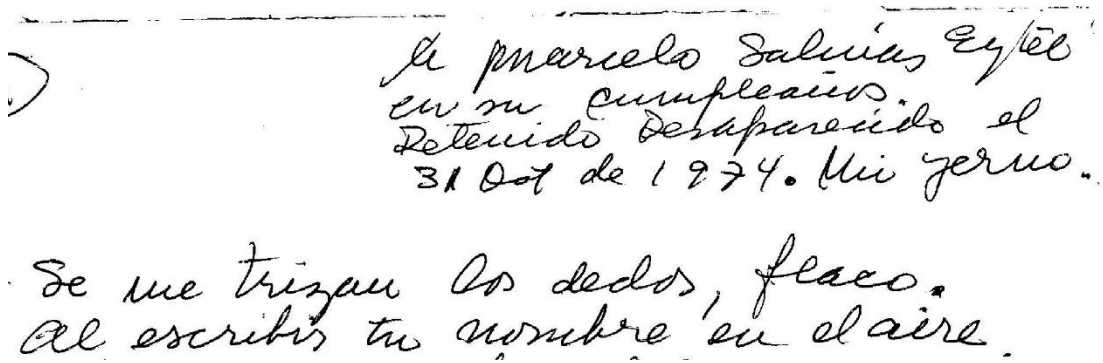 A Marcelo Salinas Eytel
en su cumpleaños.
Detenido Desaparecido el
31 Oct de 1974. Mi yerno.
Se me trizan los dedos, flaco.
al escribir tu nombre en el aire.